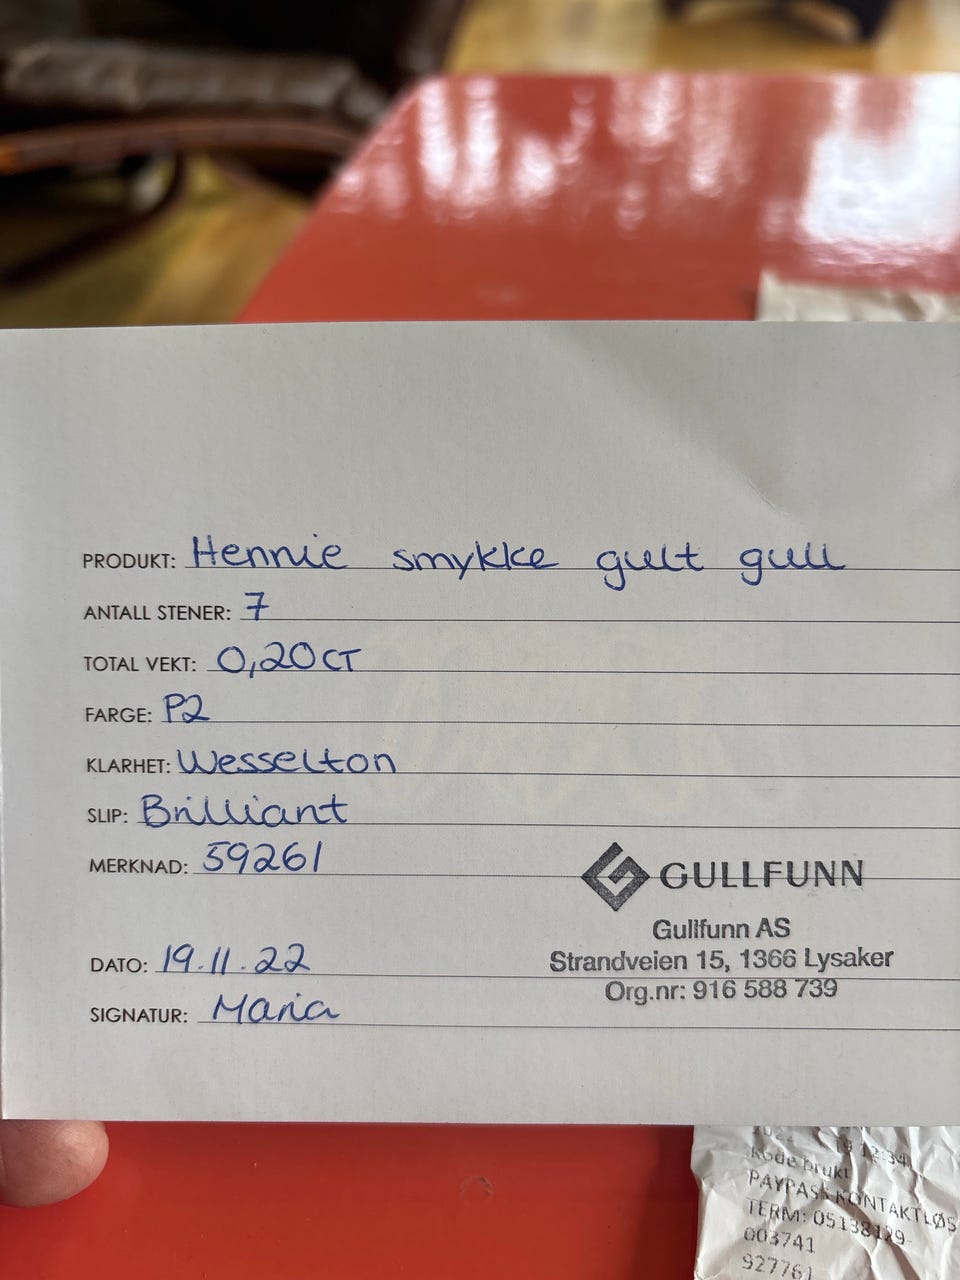 PRODUKT: Hennie smykke gult gull
ANTALL STENER: 7
TOTAL VEKT: 0,20 CT
FARGE: P2
KLARHET: Wesselton
SLIP: Brilliant
MERKNAD: 59261
GULLFUNN
Gullfunn AS
Strandveien 15, 1366 Lysaker
Org.nr: 916 588 739
DATO: 19.11.22
SIGNATUR: Maria
12:34
Kode brukt
PAYPASS KONTAKTLØS
TERM: 05138129-
003741
927761